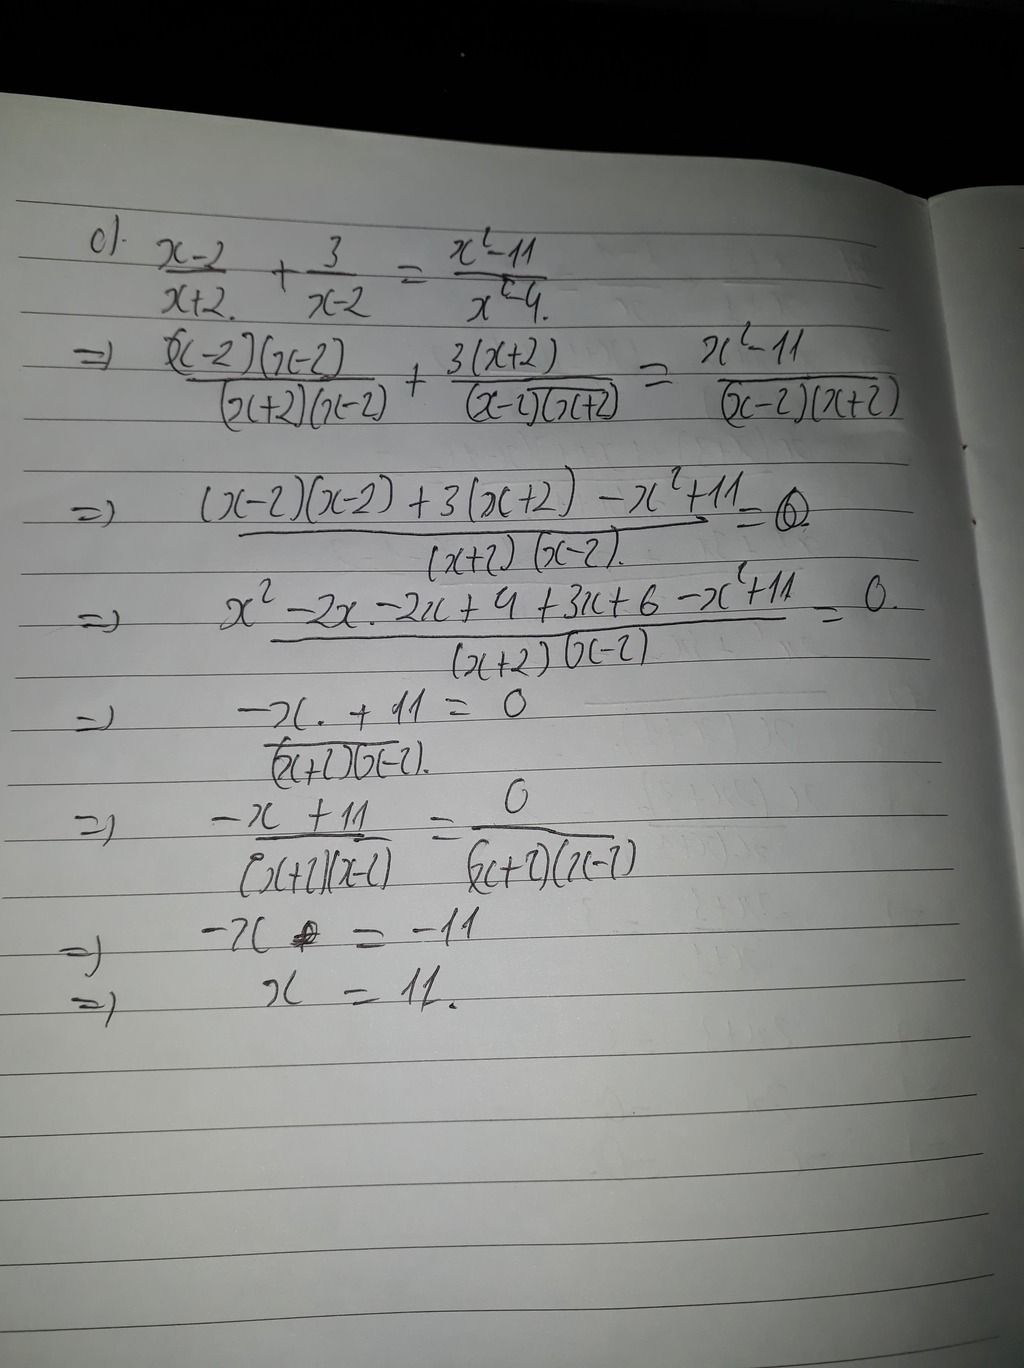 c). (x-2)/(x+2) + 3/(x-2) = (x²-11)/(x²-4).
=> (x-2)(x-2)/(x+2)(x-2) + 3(x+2)/(x-2)(x+2) = x²-11/(x-2)(x+2)
=> (x-2)(x-2) + 3(x+2) - x²+11/(x+2)(x-2). = 0
=> x² - 2x - 2x + 4 + 3x + 6 - x² + 11/(x+2)(x-2) = 0.
=> -x. + 11/(x+2)(x-2). = 0
=> -x + 11/(x+2)(x-2) = 0/(x+2)(x-2)
=> -x = -11
=> x = 11.